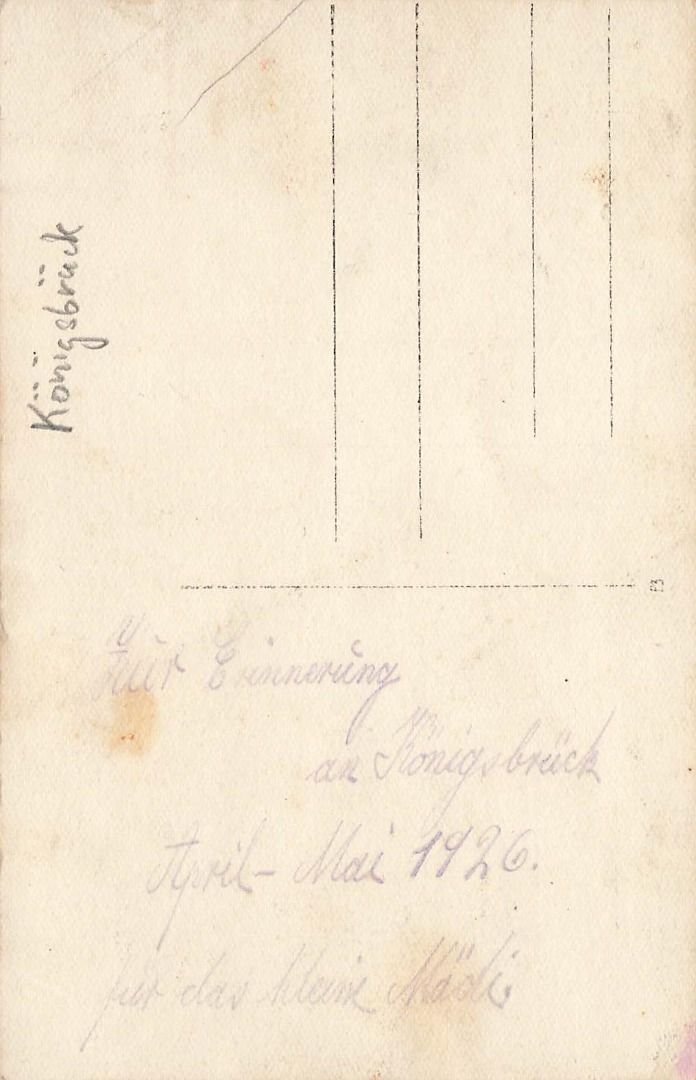 Königsbrück
Zur Erinnerung
an Königsbrück
April - Mai 1926.
für das kleine Mädi.